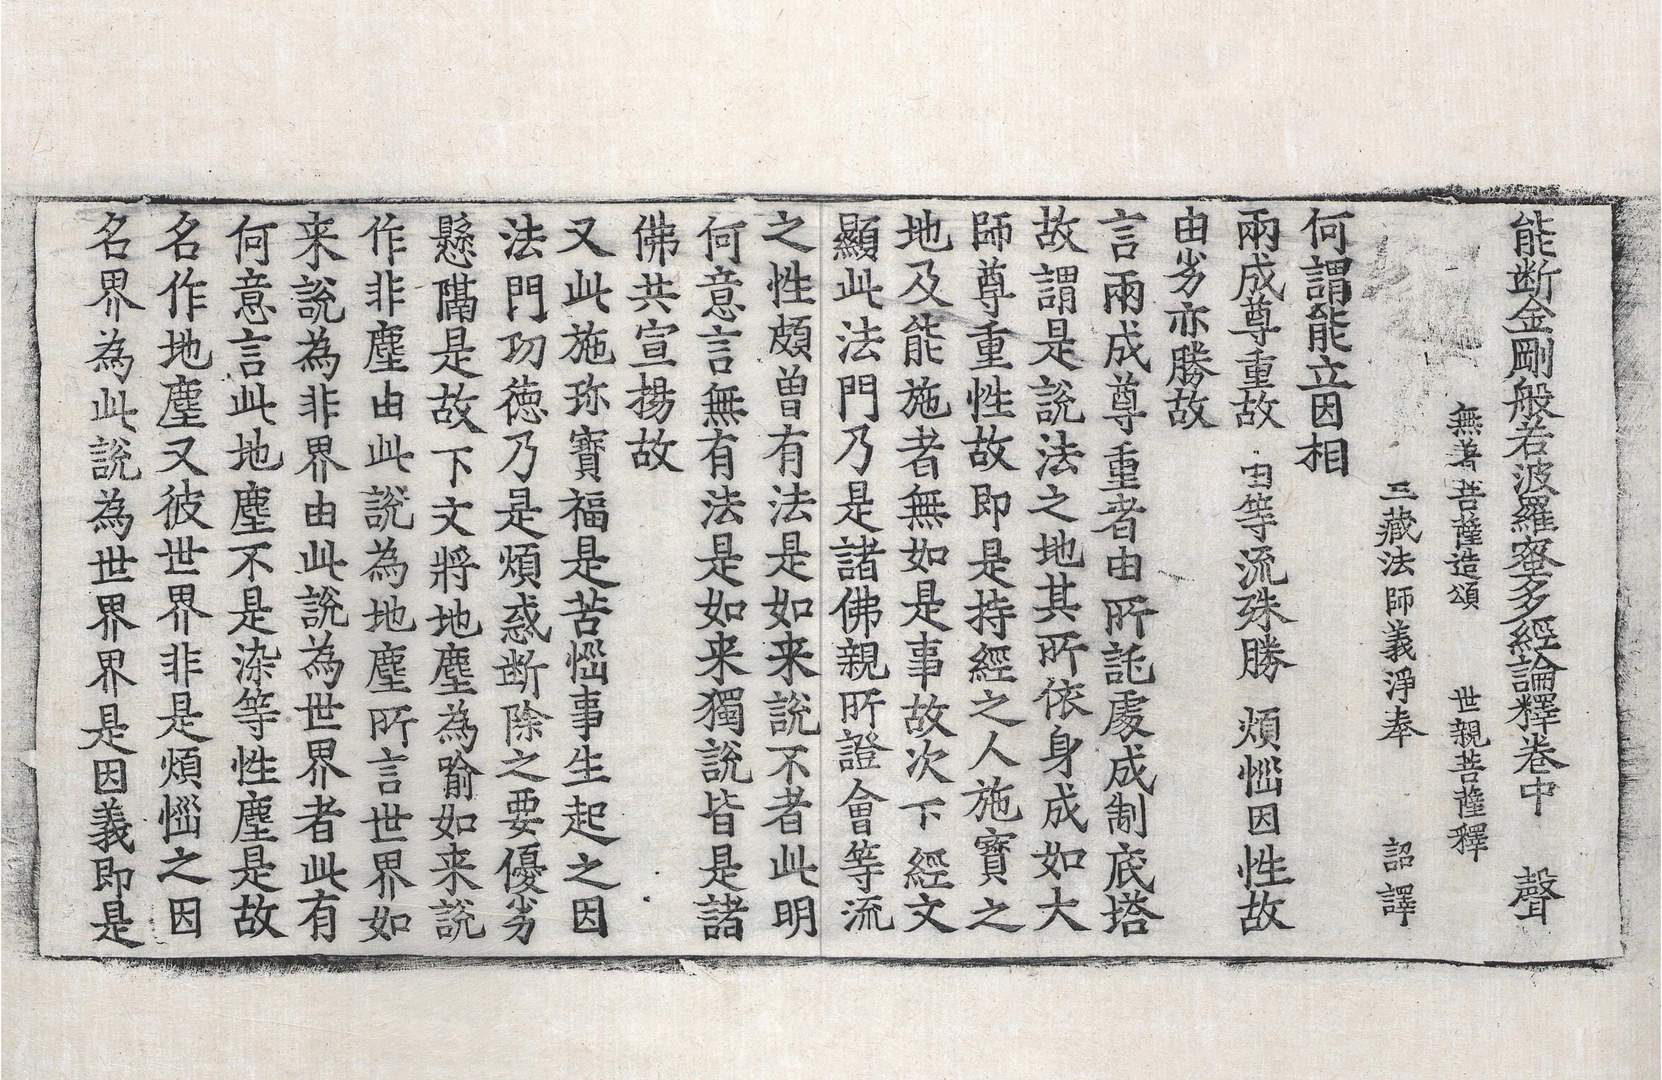 能断金剛般若波羅蜜多經論釋卷中 聲
無著菩薩造頌 世親菩薩釋
三藏法師義淨奉 詔譯
何謂能立因相
兩成尊重故 由等流殊勝 煩惱因性故
由劣亦勝故
言兩成尊重者由所託處成制底塔
故謂是說法之地其所依身成如大
師尊重性故即是持經之人施寶之
地及能施者無如是事故次下經文
顯此法門乃是諸佛親所證會等流
之性頗曽有法是如来說不者此明
何意言無有法是如来獨說皆是諸
佛共宣揚故
又此施珎寶福是苦惱事生起之因
法門功徳乃是煩惑断除之要優劣
懸隔是故下文將地塵為喻如来說
作非塵由此說為地塵所言世界如
来說為非界由此說為世界者此有
何意言此地塵不是染等性塵是故
名作地塵又彼世界非是煩惱之因
名界為此說為世界界是因義即是